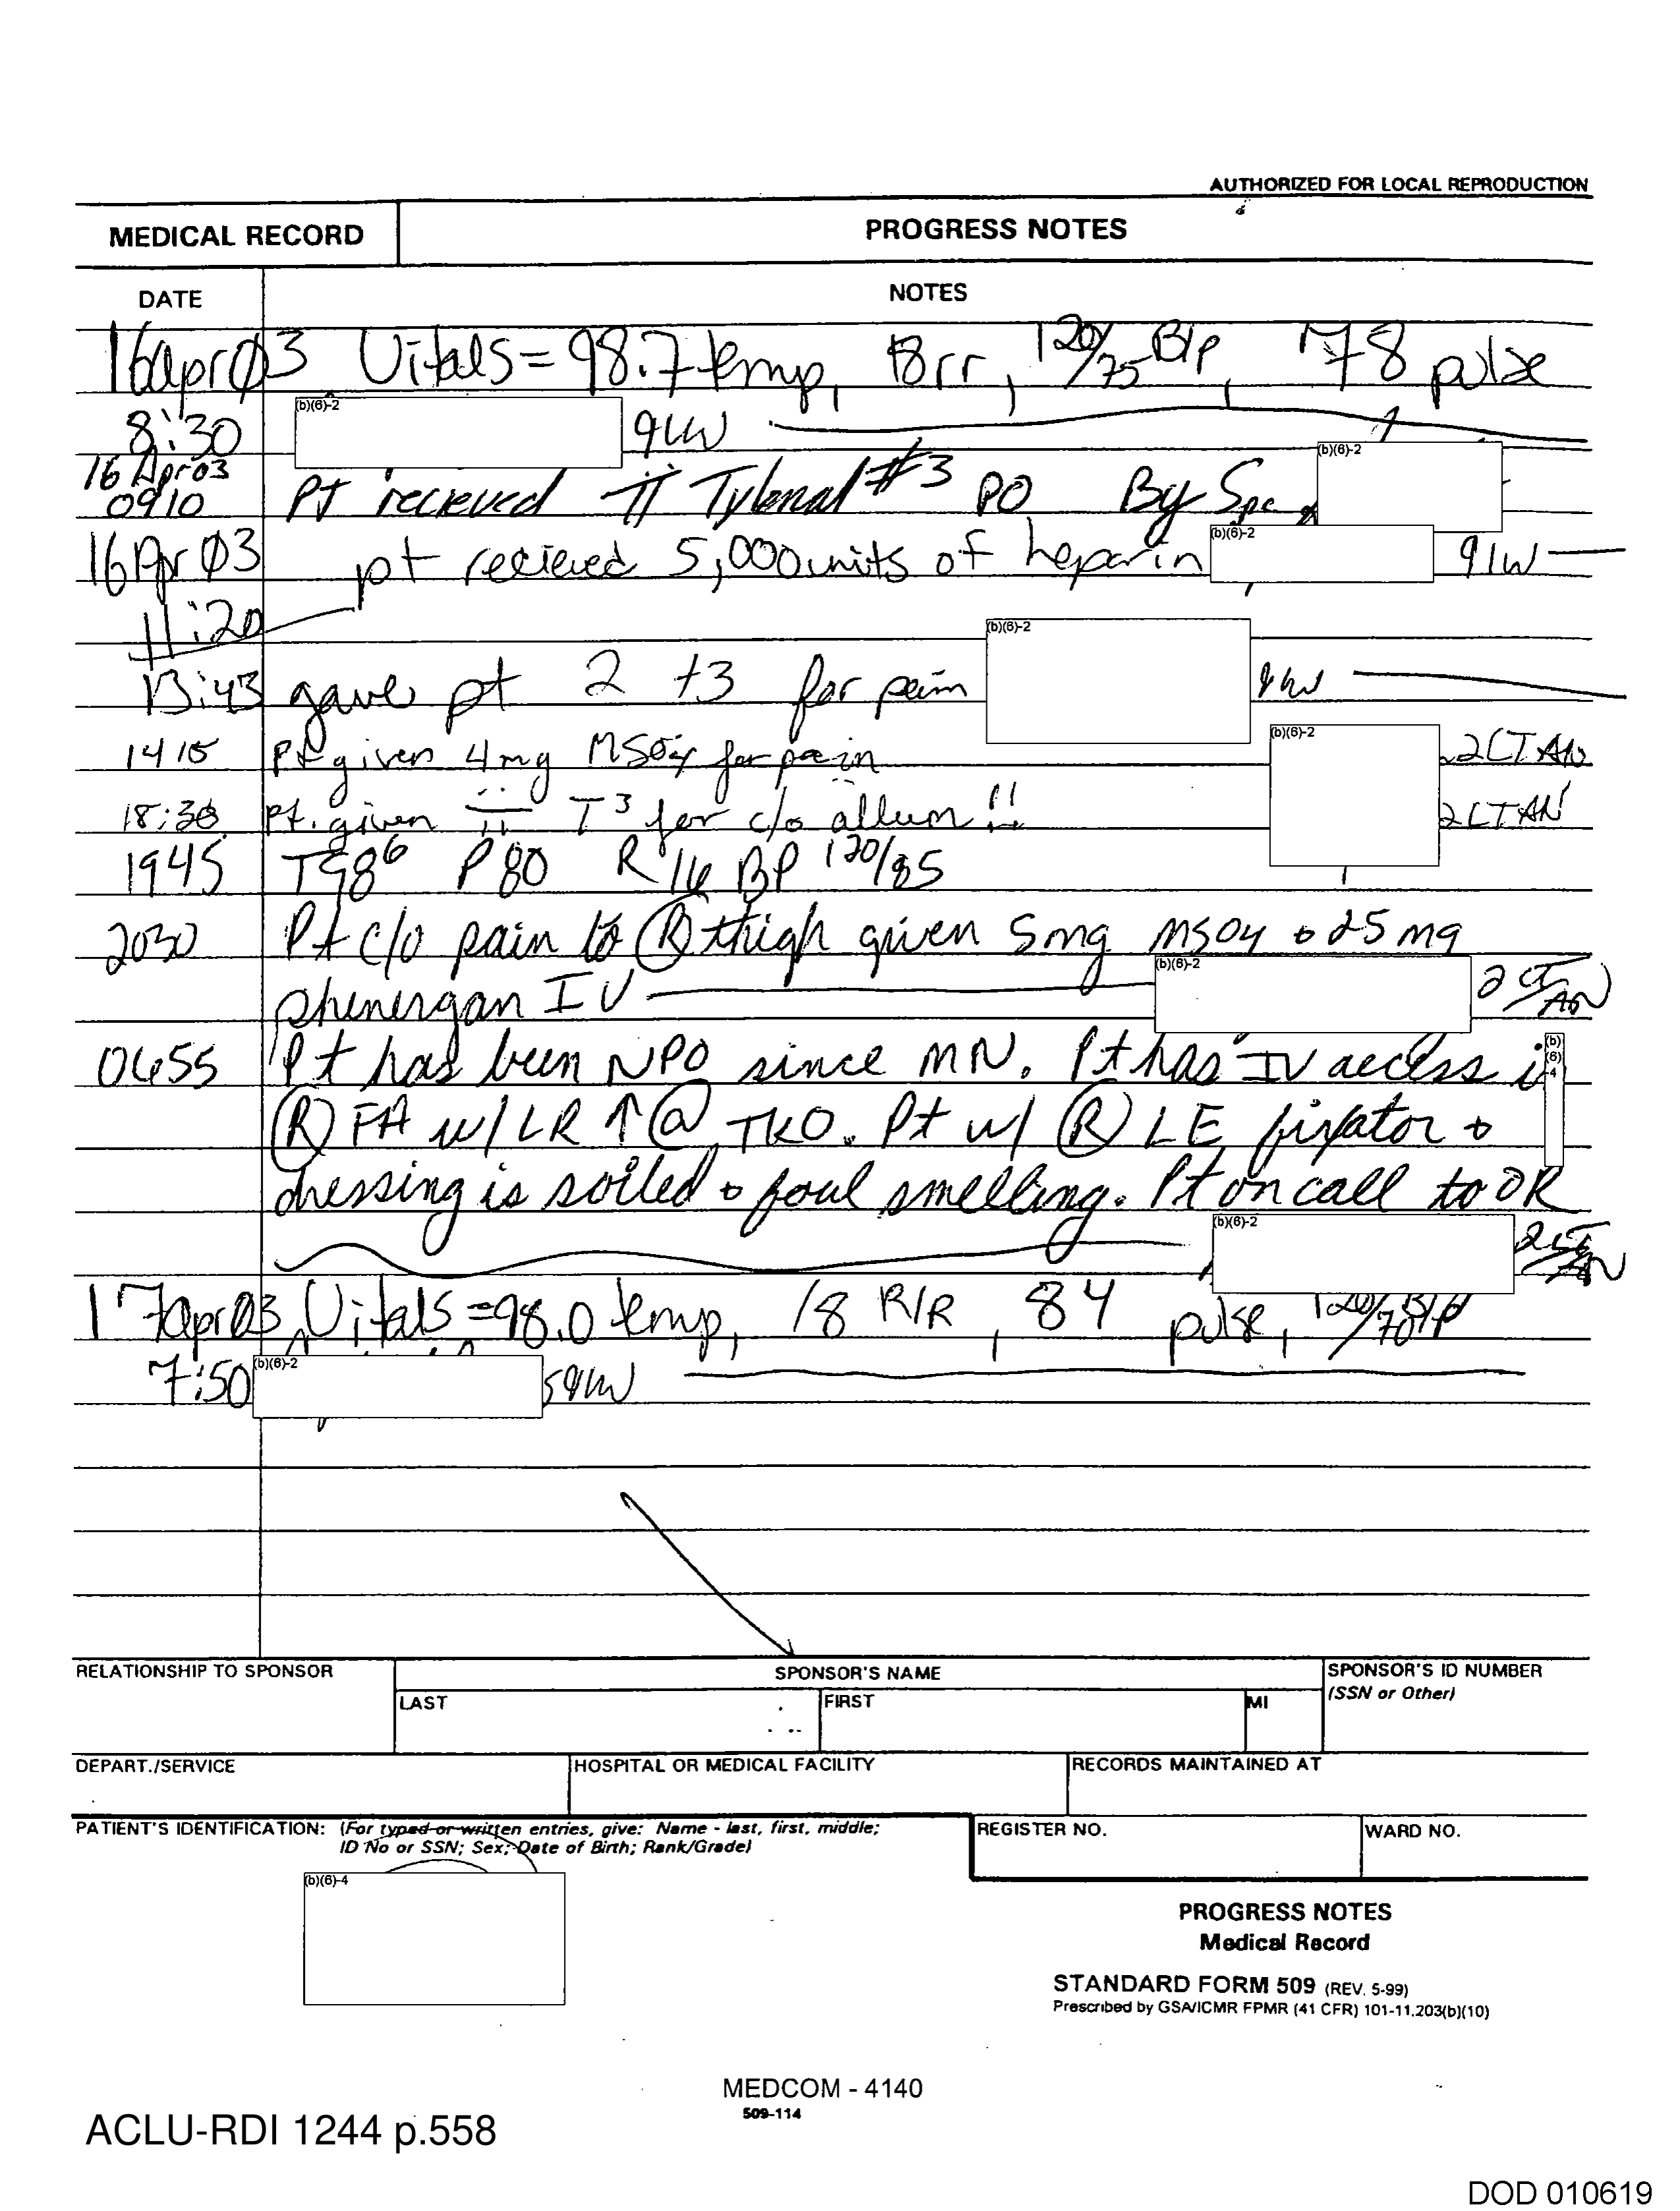 AUTHORIZED FOR LOCAL REPRODUCTION
MEDICAL RECORD PROGRESS NOTES
DATE NOTES
16Apr03 Vitals = 98.7 temp, 18 rr, 120/75 B/p, 78 pulse
8:30 (b)(6)-2 91W
16 Apr 03 (b)(6)-2
0910 Pt recieved II Tylonal #3 PO By Spc
16 Apr 03 pt recieved 5,000 units of heparin (b)(6)-2 91W
11:20
13:43 gave pt 2 t3 for pain (b)(6)-2 91W
1415 Pt given 4mg MSO4 for pain (b)(6)-2 2LTAN
18:30 Pt. given II T3 for c/o !! 2LTAN
1945 T 98⁶ P 80 R 16 BP 120/85
2030 Pt c/o pain to (R) thigh given 5mg MSO4 + 25 mg
phenergan IV (b)(6)-2 2LT/AN
0655 Pt has been NPO since MN. Pt has IV access (b)(6)-4
(R) FA w/ LR ↑ @ TKO. Pt w/ (R) LE fixator +
dressing is soiled + foul smelling. Pt on call to OR
(b)(6)-2 2LT/AN
17Apr03 Vitals = 98.0 temp, 18 R/R, 84 pulse, 120/70 B/P
7:50 (b)(6)-2 91W
RELATIONSHIP TO SPONSOR SPONSOR'S NAME SPONSOR'S ID NUMBER
LAST FIRST MI (SSN or Other)
DEPART./SERVICE HOSPITAL OR MEDICAL FACILITY RECORDS MAINTAINED AT
PATIENT'S IDENTIFICATION: (For typed or written entries, give: Name - last, first, middle; REGISTER NO. WARD NO.
ID No or SSN; Sex; Date of Birth; Rank/Grade)
(b)(6)-4
PROGRESS NOTES
Medical Record
STANDARD FORM 509 (REV. 5-99)
Prescribed by GSA/ICMR FPMR (41 CFR) 101-11.203(b)(10)
MEDCOM - 4140
509-114
ACLU-RDI 1244 p.558
DOD 010619